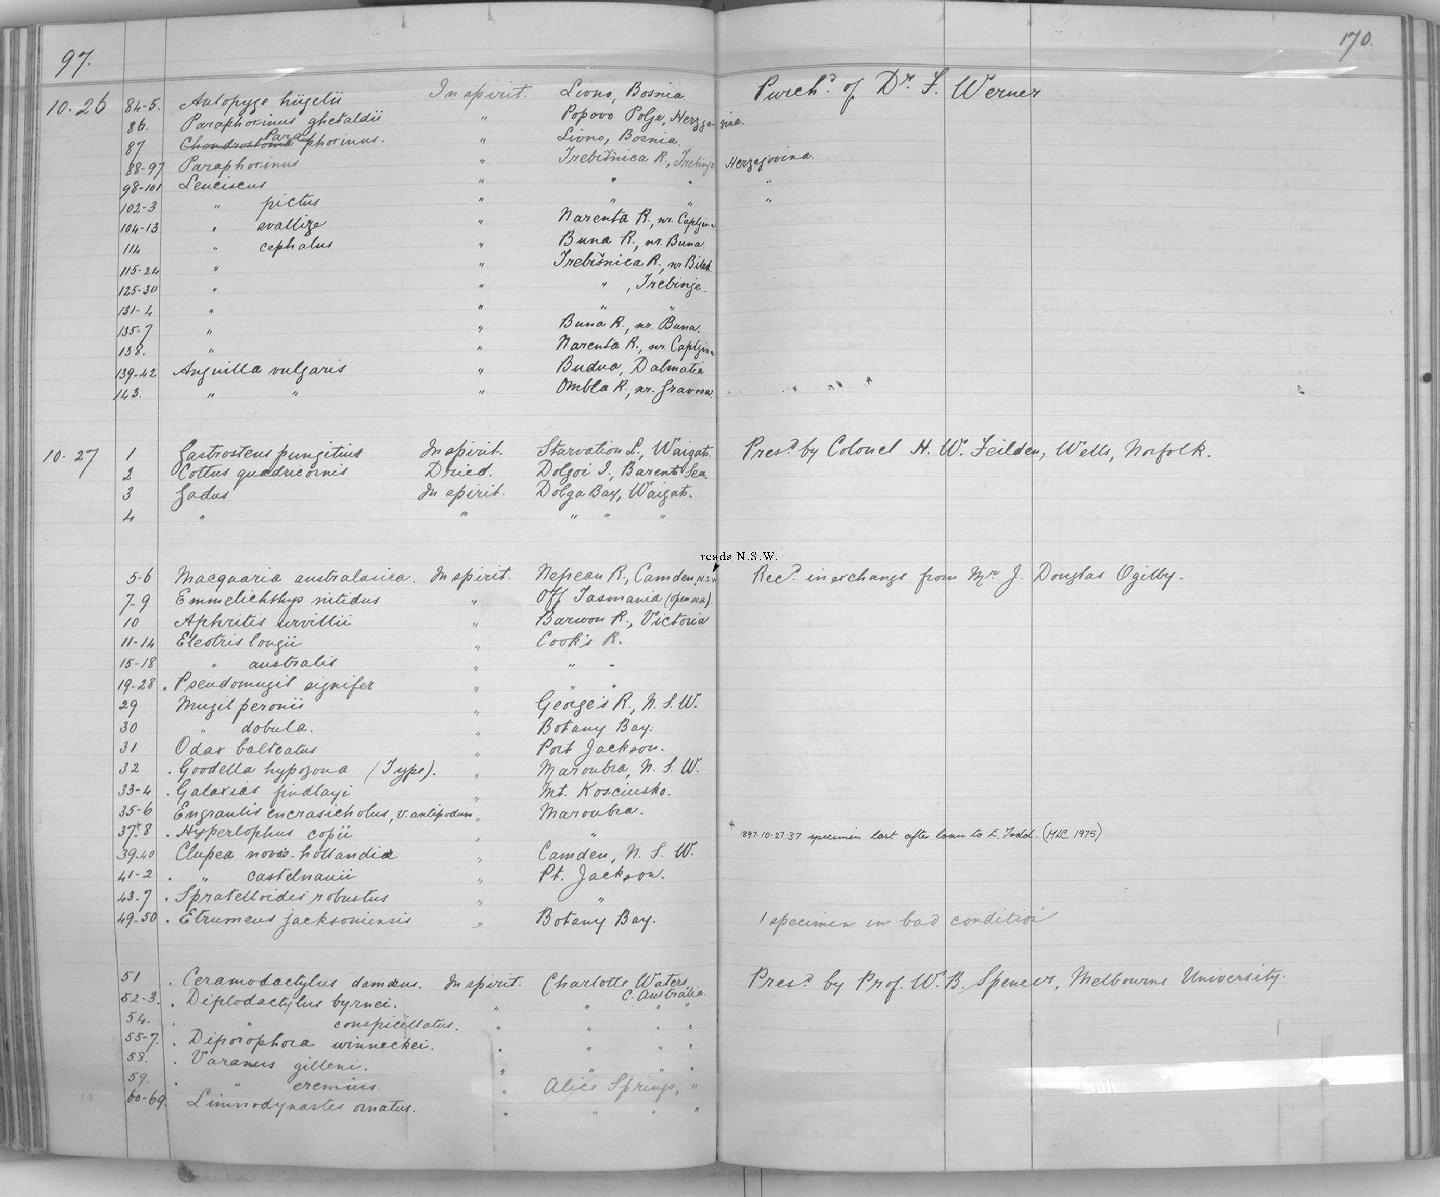 97.
170.
10.26 84-5. Aulopyge hügelii In spirit. Livno, Bosnia Purchd. of Dr. F. Werner
86. Paraphoxinus ghetaldii " Popovo Polje, Herzgegovina.
87 Chondrostoma Paraphoxinus. " Livno, Bosnia.
88-97 Paraphoxinus " Trebišnica R., Trebinje Herzegovina.
98-101 Leuciscus " " " "
102-3 " pictus " " " "
104-13 " svallize " Narenta R., nr. Capljina
114 " cephalus " Buna R., nr. Buna
115-24 " " Trebišnica R., nr Bilek
125-30 " " " , Trebinje.
131-4 " " " "
135-7 " " Buna R., nr. Buna.
138. " " Narenta R., nr. Capljina
139-42 Anguilla vulgaris " Budua, Dalmatia
143. " " " Ombla R., nr. Gravosa " " "
10.27 1 Gastrosteus pungitius In spirit. Starvation L., Waigats. Presd. by Colonel H. W. Feilden, Wells, Norfolk.
2 Cottus quadricornis Dried. Dolgoi I., Barents Sea
3 Gadus In spirit. Dolga Bay, Waigats.
4 " " " " "
reads N.S.W.
5-6 Macquaria australasica. In spirit. Nepean R., Camden, N.S.W. Recd. in exchange from Mr. J. Douglas Ogilby.
7-9 Emmelichthys nitidus " Off Tasmania (open sea).
10 Aphritis urvillii " Barwon R., Victoria
11-14 Eleotris longii " Cook's R.
15-18 " australis " " "
19-28 . Pseudomugil signifer " " "
29 Mugil peronii " George's R., N.S.W.
30 " dobula. " Botany Bay.
31 Odax balteatus " Port Jackson.
32 . Goodella hypozona (Type). " Maroubra, N.S.W.
33-4 . Galaxias findlayi " Mt. Kosciusko.
35-6 Engraulis encrasicholus, v. antipodum " Maroubra.
37-8 . Hyperlophus copii " " * 1897.10.27.37 specimen lost after loan to E. Todd. (MLC 1975)
39-40 Clupea novæ-hollandiæ " Camden, N.S.W.
41-2 . " castelnauii " Pt. Jackson.
43-7 . Spratelloides robustus " "
49-50 . Etrumeus jacksoniensis " Botany Bay. 1 specimen in bad condition
51 . Ceramodactylus damæus. In spirit. Charlotte Waters, C. Australia. Presd. by Prof. W. B. Spencer, Melbourne University.
52-3. . Diplodactylus byrnei. " " " "
54. . " conspicillatus. " " " "
55-7. . Diporophora winneckei. " " " "
58. . Varanus gilleni. " " " "
59. . " eremius. " Alice Springs, "
60-69. Limnodynastes ornatus. " " " "